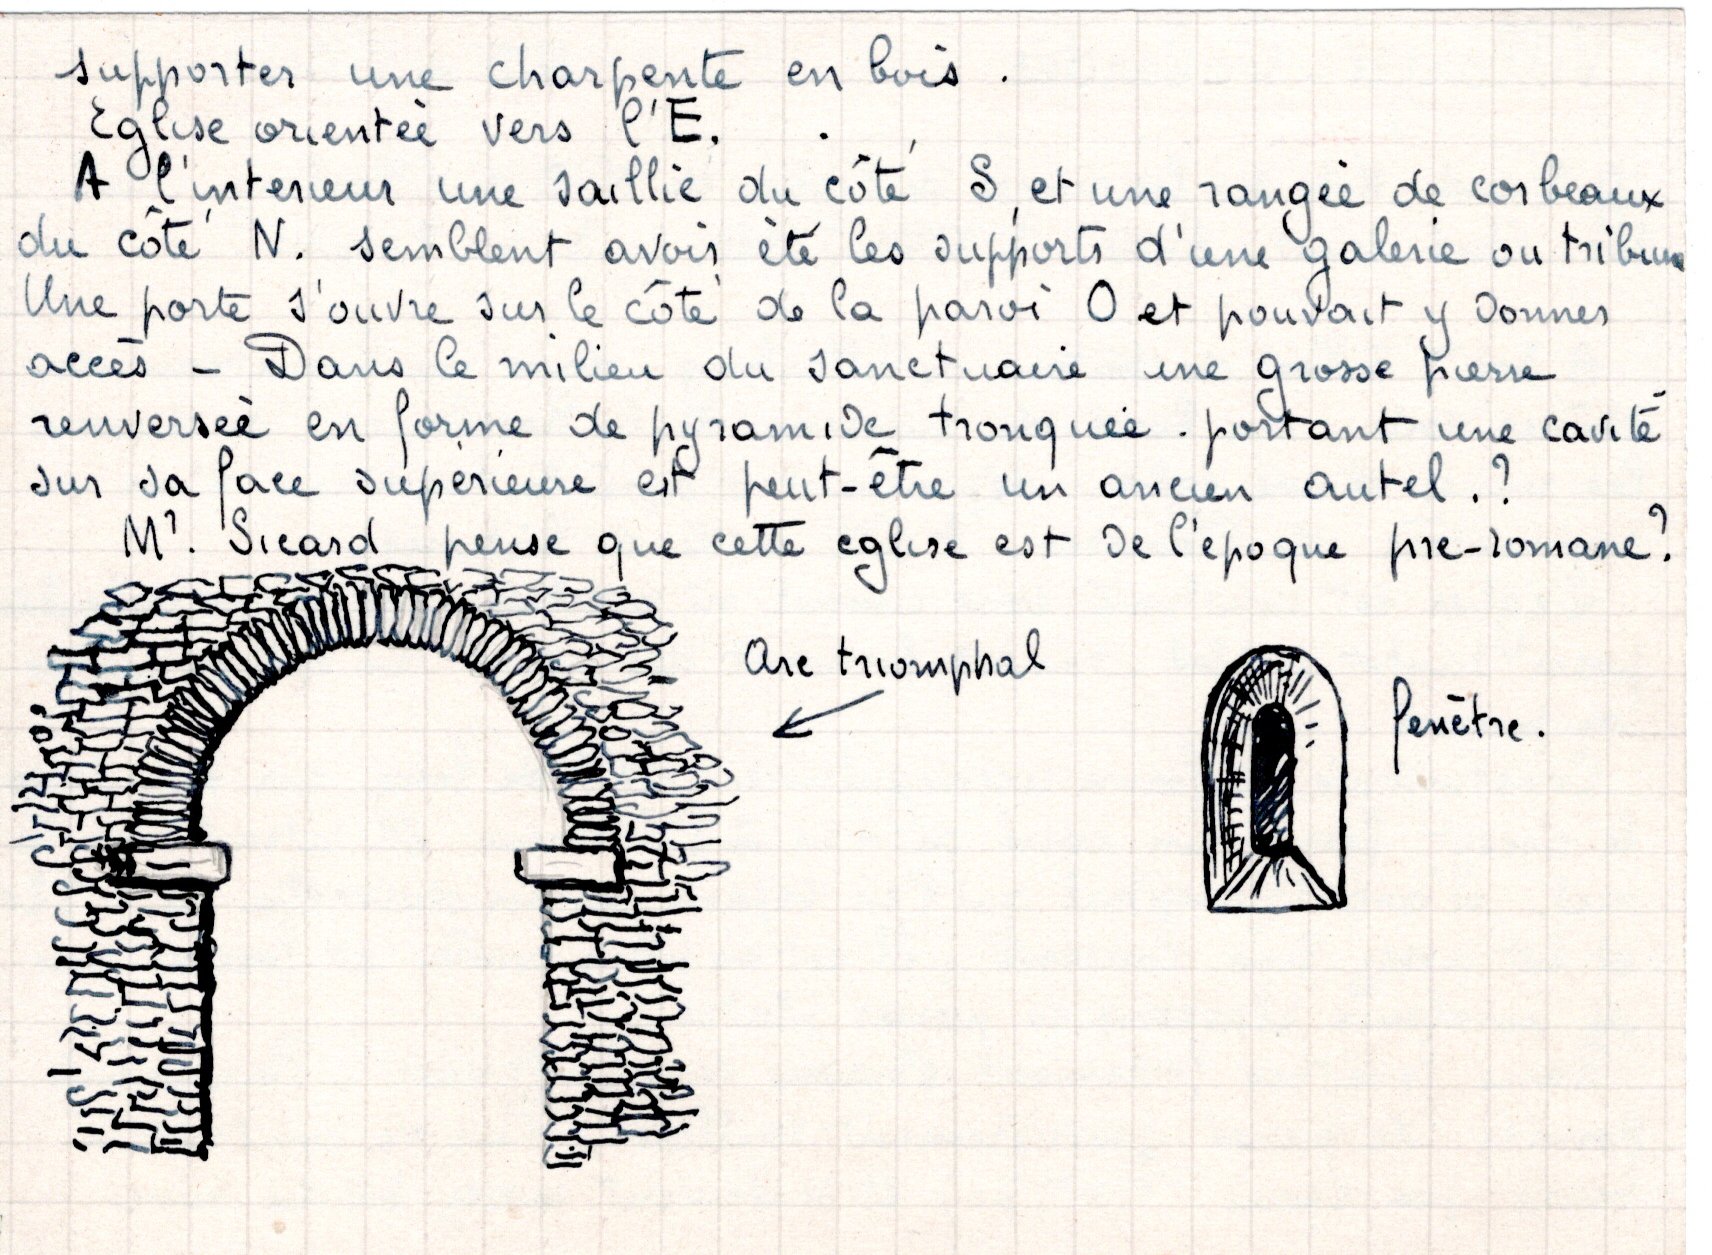 supporter une charpente en bois.
Eglise orientée vers l'E.
A l'interieur une saillie du côté S, et une rangée de corbeaux
du côté N. semblent avoir été les supports d'une galerie ou tribune
Une porte s'ouvre sur le côté de la paroi O et pouvait y donner
accès – Dans le milieu du sanctuaire une grosse pierre
renversée en forme de pyramide tronquée. portant une cavité
sur sa face supérieure est peut-être un ancien autel.?
Mr. Sicard pense que cette eglise est de l'époque pre-romane?
Arc triomphal
fenêtre.